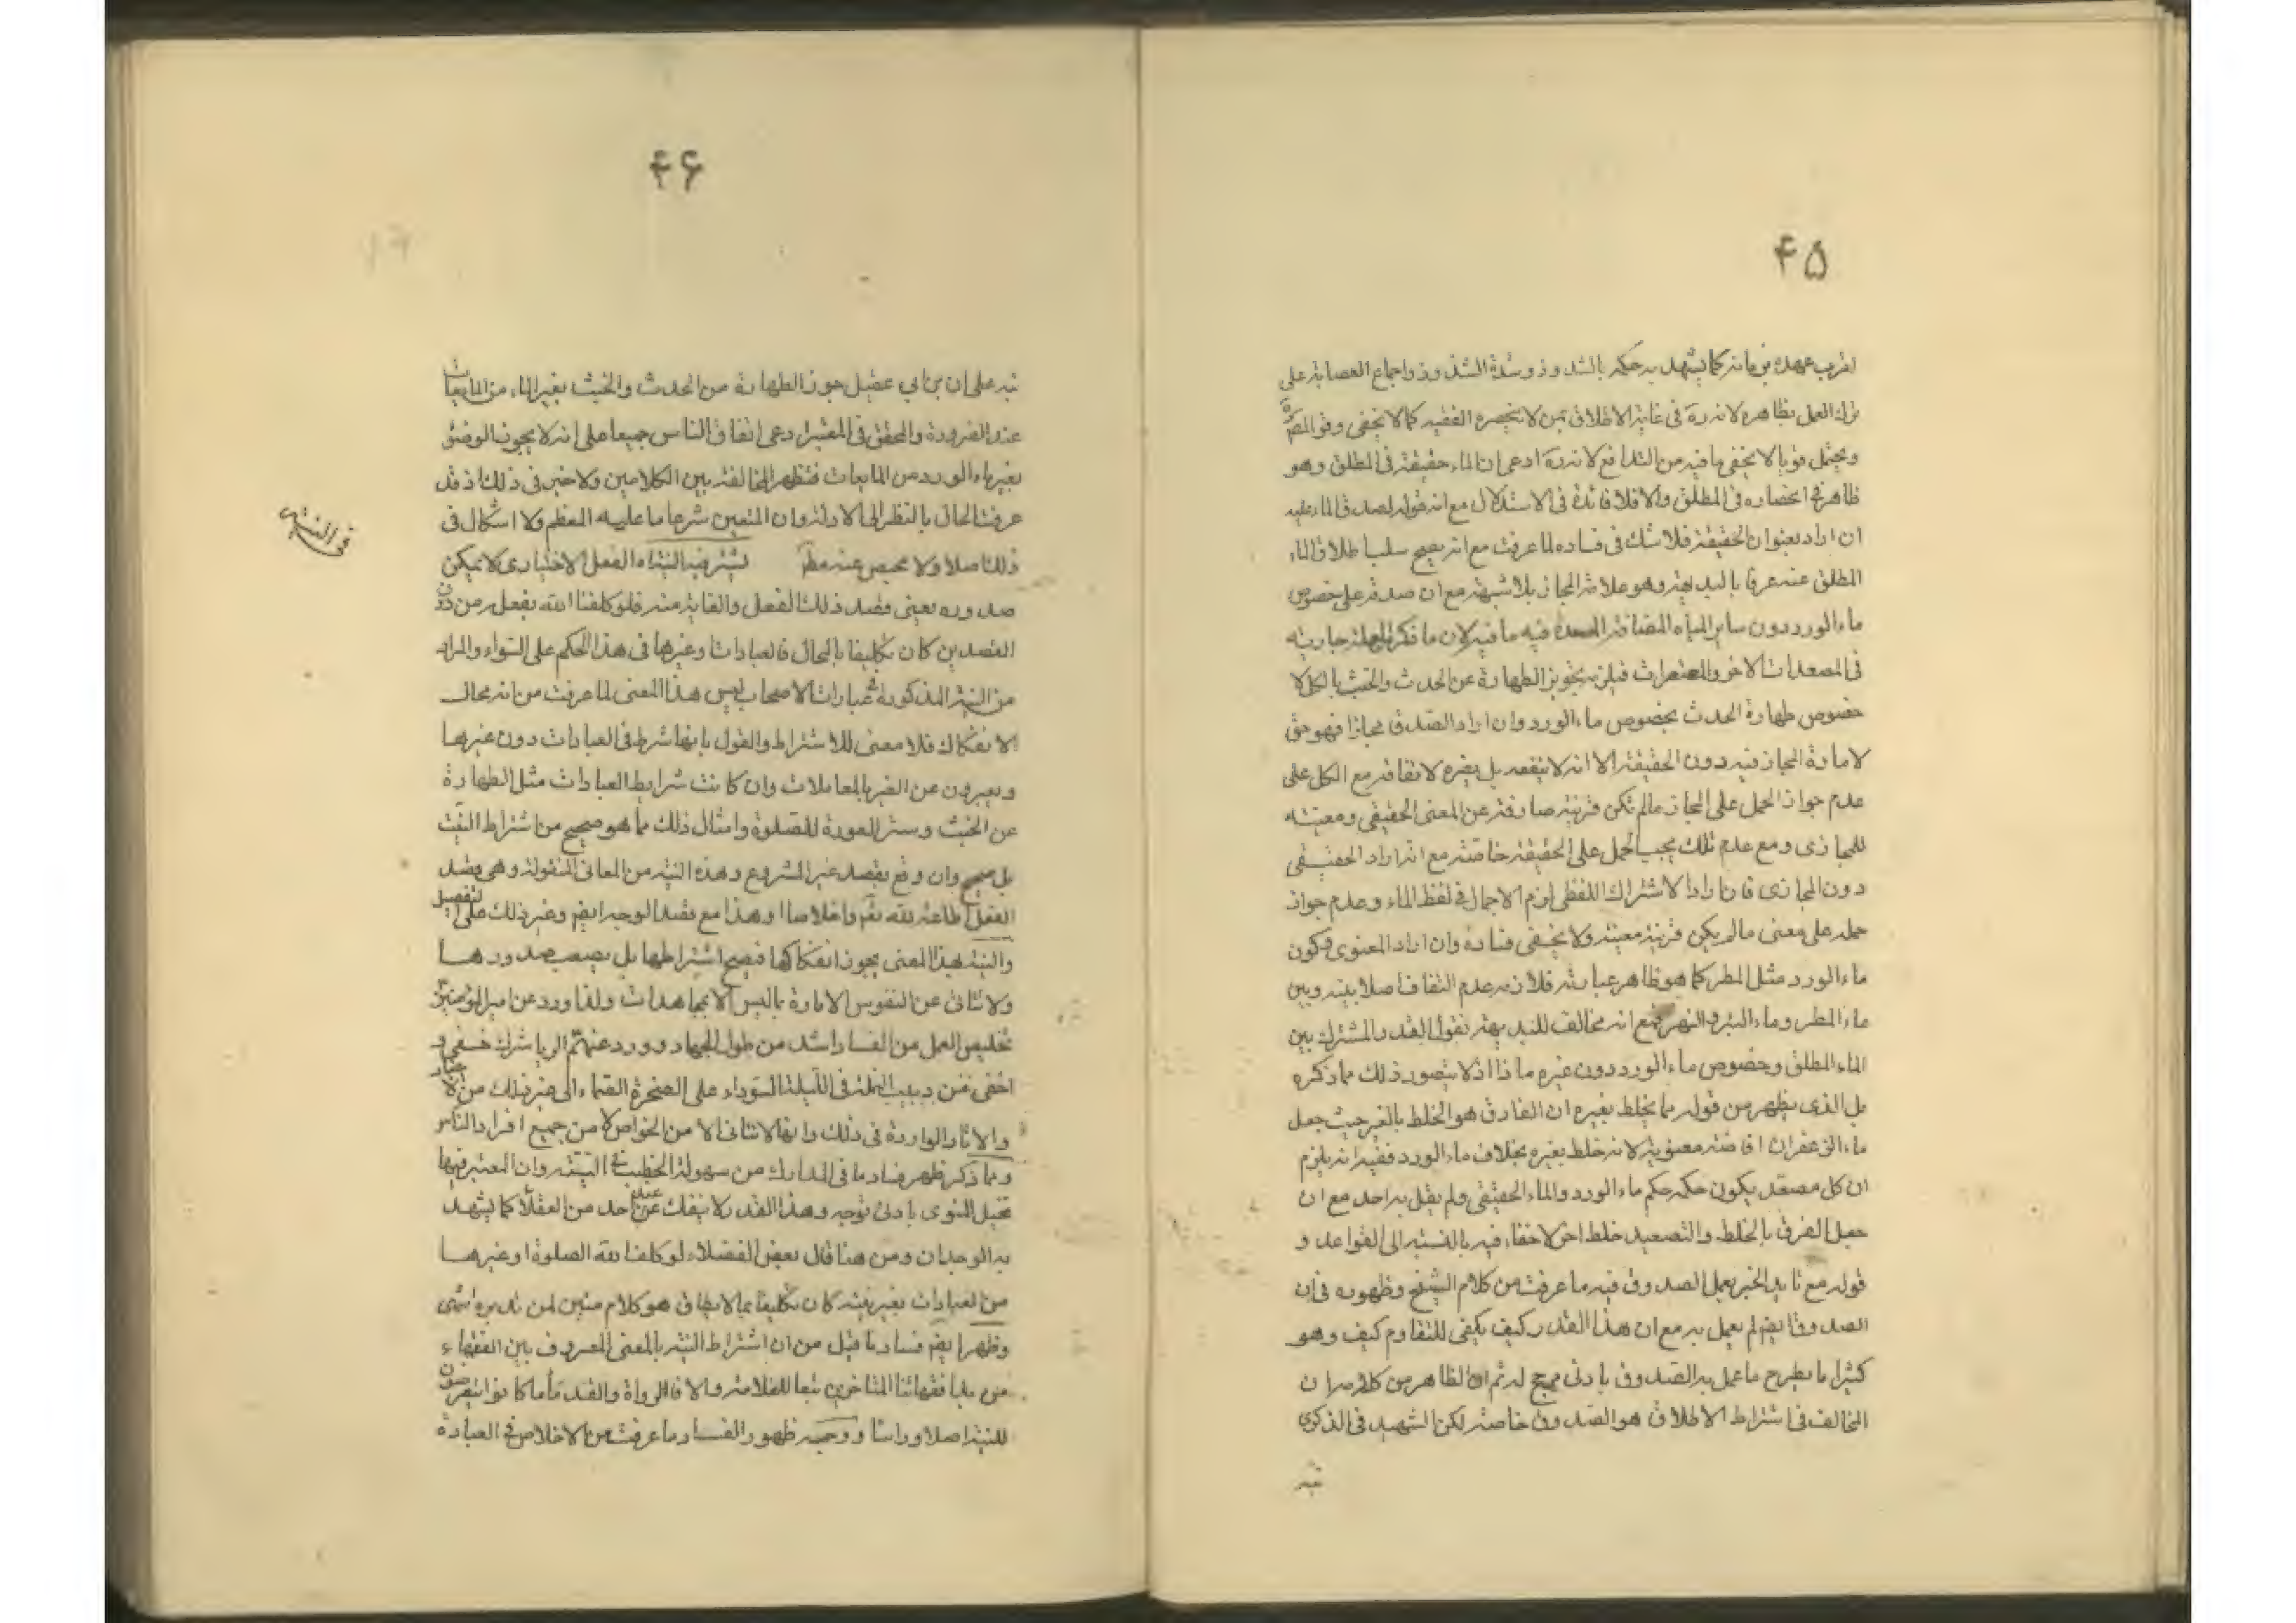 ۴۵
لقرب عهده بزمانه كما يشهد به حكمه بالشذوذ وشدة الشذوذ واجماع العصابة على
ترك العمل بظاهره لاندرة فى غاية الاطلاق بمن لا يحصره الفقيه كما لا يخفى وفى
ويحتمل قويا لا يخفى ما فيه من التدافع لانه ادعى ان الماء حقيقة فى المطلق وهو
ظاهر فى انحصاره فى المطلق والا فلا فائدة فى الاستدلال مع انه قوله لصدق الماء عليه
ان اراد بعنوان الحقيقة فلا شك فى فساده لما عرفت مع انه يصح سلب اطلاق الماء
المطلق عنه عرفا بالبديهة وهو علامة المجاز بلا شبهة مع ان صدقه على خصوص
ماء الورد دون ساير المياه المضافة المصعدة فيه ما فيه لان ما ذكره جارية
فى المصعدات الاخر والمعتصرات فيلزمه تجويز الطهارة عن الحدث والخبث بالكل لا
خصوص طهارة الحدث بخصوص ماء الورد وان اراد الصدق مجازا فهو حق
لامارة المجاز فيه دون الحقيقة الا انه لا ينفعه بل يضره لاتفاقه مع الكل على
عدم جواز الحمل على المجاز مالم تكن قرينة صارفة عن المعنى الحقيقى ومعينة
للمجازى ومع عدم تلك يجب الحمل على الحقيقة خاصة مع انه اراد الحقيقى
دون المجازى فان اراد الاشتراك اللفظى لزم الاجمال فى لفظ الماء وعدم جواز
حمله على معنى مالم يكن قرينة معينة ولا يخفى فساده وان اراد المعنوى فكون
ماء الورد مثل المطر كما هو ظاهر عبارته فلازمه عدم التفاوت اصلا بينه وبين
ماء المطر وماء البئر والنهر مع انه مخالف للبديهة نقول القدر المشترك بين
الماء المطلق وخصوص ماء الورد دون غيره ماذا اذ لا يتصور ذلك مما ذكره
بل الذى يظهر من قوله بما يختلط بغيره ان الفارق هو الخلط بالغير حيث جعل
ماء الزعفران اضافته معنوية لانه خلط بغيره بخلاف ماء الورد ففيه انه يلزم
ان كل مصعد يكون حكمه حكم ماء الورد والماء الحقيقى ولم يقل به احد مع ان
جعل الفرق بالخلط والتصعيد خلط اخر لا خفاء فيه بالنسبة الى القواعد و
قوله مع تايد الخبر بعمل الصدوق فيه ما عرفت من كلام الشيخ وظهوره فى ان
الصدوق ايضم لم يعمل به مع ان هذا القدر كيف يكفى للتقاوم كيف وهو
كثيرا ما يطرح ما عمل به الصدوق بادنى مرجح له ثم ان الظاهر من كلامه ان
المخالف فى اشتراط الاطلاق هو الصدوق خاصة لكن الشهيد فى الذكرى
نبه
۴۶
نبه على ان بن ابى عقيل جوز الطهارة من الحدث والخبث بغير الماء من المايعات
عند الضرورة والمحقق فى المعتبر ادعى اتفاق الناس جميعا على انه لا يجوز الوضوء
بغير ماء الورد من المايعات فتظهر المخالفة بين الكلامين ولا خير فى ذلك اذ قد
عرفت الحال بالنظر الى الادلة وان المتعين شرعا ما عليه المعظم ولا اشكال فى
ذلك اصلا ولا محيص عنه يشترط فيه النية اذ الفعل الاختيارى لا يمكن
صدوره بغير قصد ذلك الفعل والغاية منه فلو كلفنا الله بفعل من دون
القصدين كان تكليفا بالمحال فالعبادات وغيرها فى هذا الحكم على السواء والمراد
من النية المذكورة فى عبارات الاصحاب ليس هذا المعنى لما عرفت من انه محال
الانفكاك فلا معنى للاشتراط والقول بانها شرط فى العبادات دون غيرها
ويعبرون عن الغير بالمعاملات وان كانت شرايط العبادات مثل الطهارة
عن الخبث وستر العورة للصلوة وامثال ذلك مما هو صحيح من اشتراط النية
بل صحيح وان وقع بقصد غير المشروع وهذه النية من المعانى المنقولة وهى قصد
الفعل اطاعة لله تعم واخلاصا او هذا مع قصد الوجه ايضم وغير ذلك على التفصيل
والنية بهذا المعنى يجوز انفكاكها فيصح اشتراطها بل يصعب صدورها
ولا تتاتى عن النفوس الامارة بالسوء الا بمجاهدات ولذا ورد عن امير المؤمنين
تخليص العمل من الفساد اشد من طول الجهاد وورد عنهم ان الريا شرك خفى و
اخفى من دبيب النملة فى الليلة السوداء على الصخرة الصماء الى غير ذلك من الاخبار
والاثار الواردة فى ذلك وانها لا تتاتى الا من الخواص لا من جميع افراد الناس
ومما ذكر ظهر فساد ما فى المدارك من سهولة الخطب فى النية وان المعتبر فيها
تخيل المنوى بادنى توجه وهذا القدر لا ينفك عنه احد من العقلاء كما يشهد
به الوجدان ومن هنا قال بعض الفضلاء لو كلفنا الله الصلوة او غيرها
من العبادات بغير نية كان تكليفا بما لا يطاق هو كلام متين لمن تدبره انتهى
وظهر ايضم فساد ما قيل من ان اشتراط النية بالمعنى المعروف بين الفقهاء
فقهائنا المتاخرين تبعا للعلامة والا فالرواة والقدماء ما كانوا يتعرضون
للنية اصلا وراسا ووجه ظهور الفساد ما عرفت من الاخلاص فى العبادة
فى النية